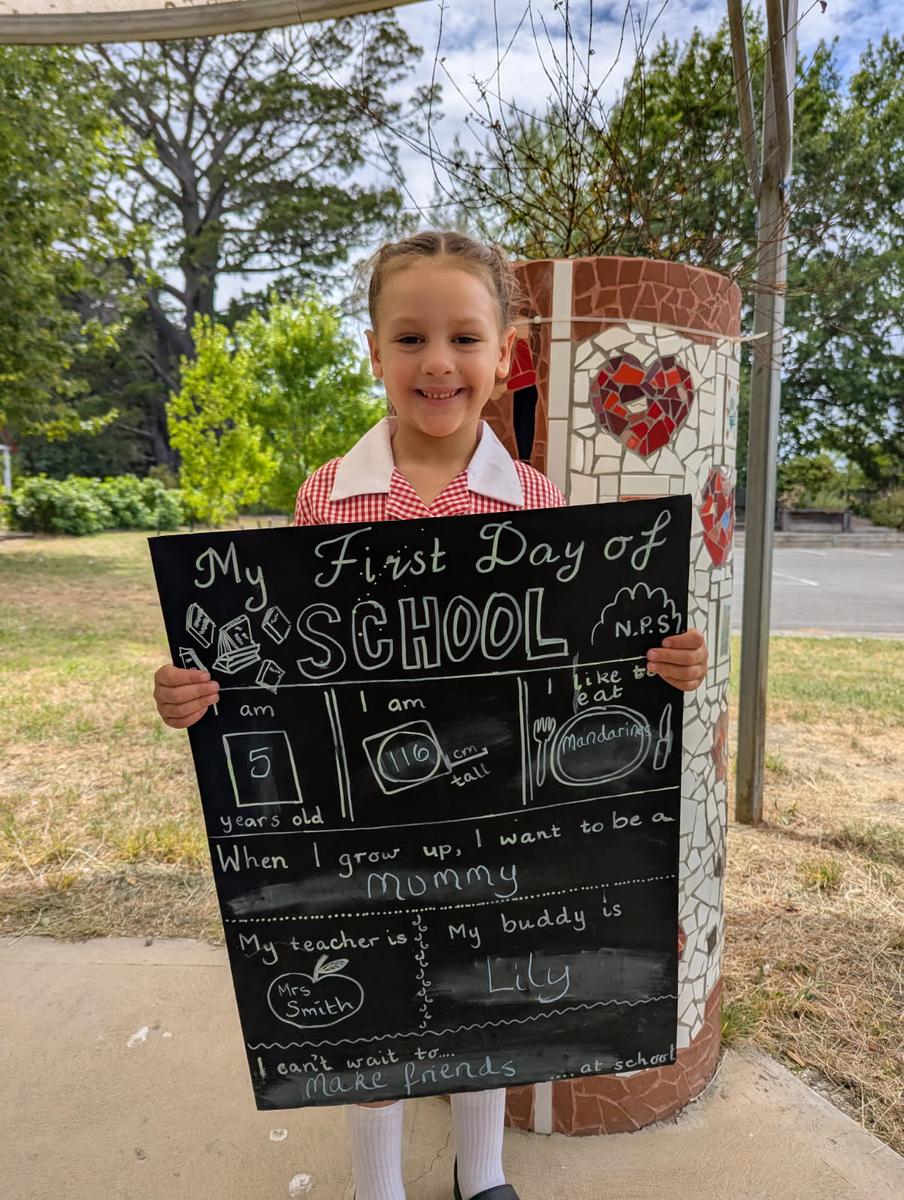 My First Day of
SCHOOL
N.P.S
I am
5
years old
I am
116 cm
tall
I like to
eat
Mandarines
When I grow up, I want to be a
Mummy
My teacher is
Mrs
Smith
My buddy is
Lily
I can't wait to....
Make friends
.... at school